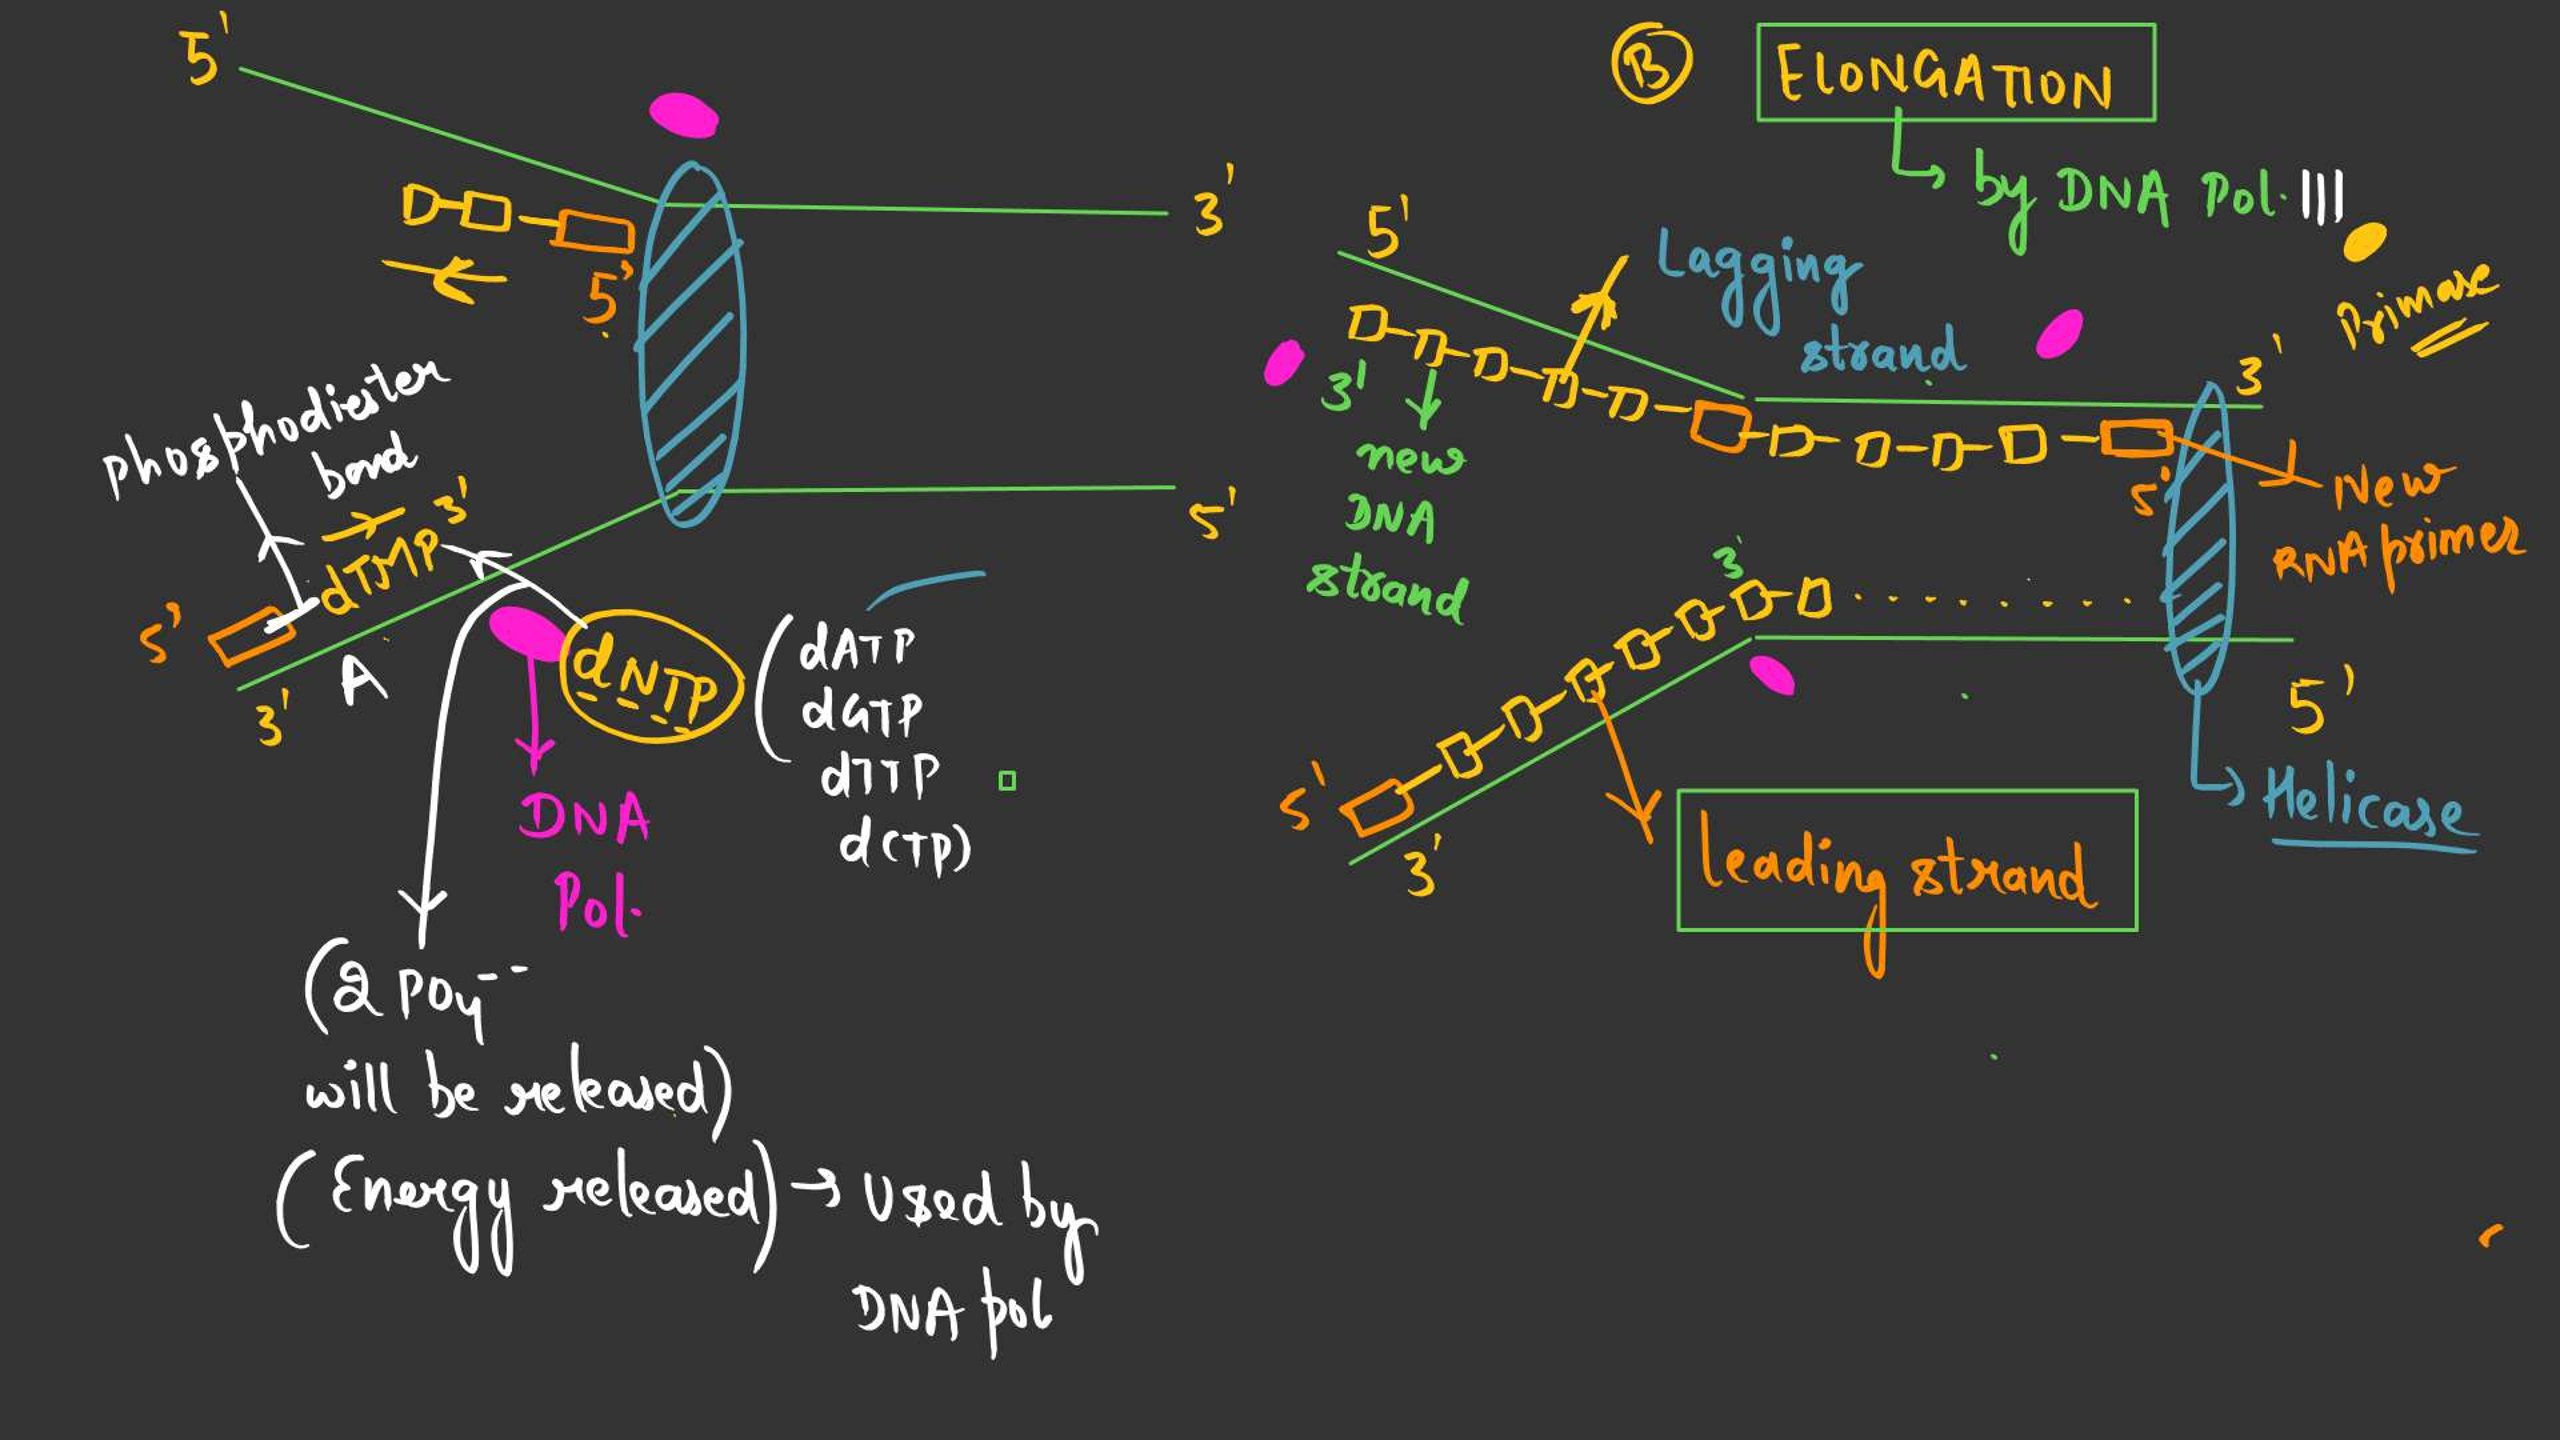 5'
3'
5'
phosphodiester
bond
3'
dTMP
5'
A
3'
5'
dNTP
(dATP
dGTP
dTTP
dCTP)
DNA
Pol.
(2 PO4--
will be released)
(Energy released) → Used by
DNA pol
B ELONGATION
by DNA Pol. III
5'
Lagging
strand
Primase
3'
3'
new
DNA
strand
5'
New
RNA primer
3'
5'
3'
5'
Helicase
leading strand